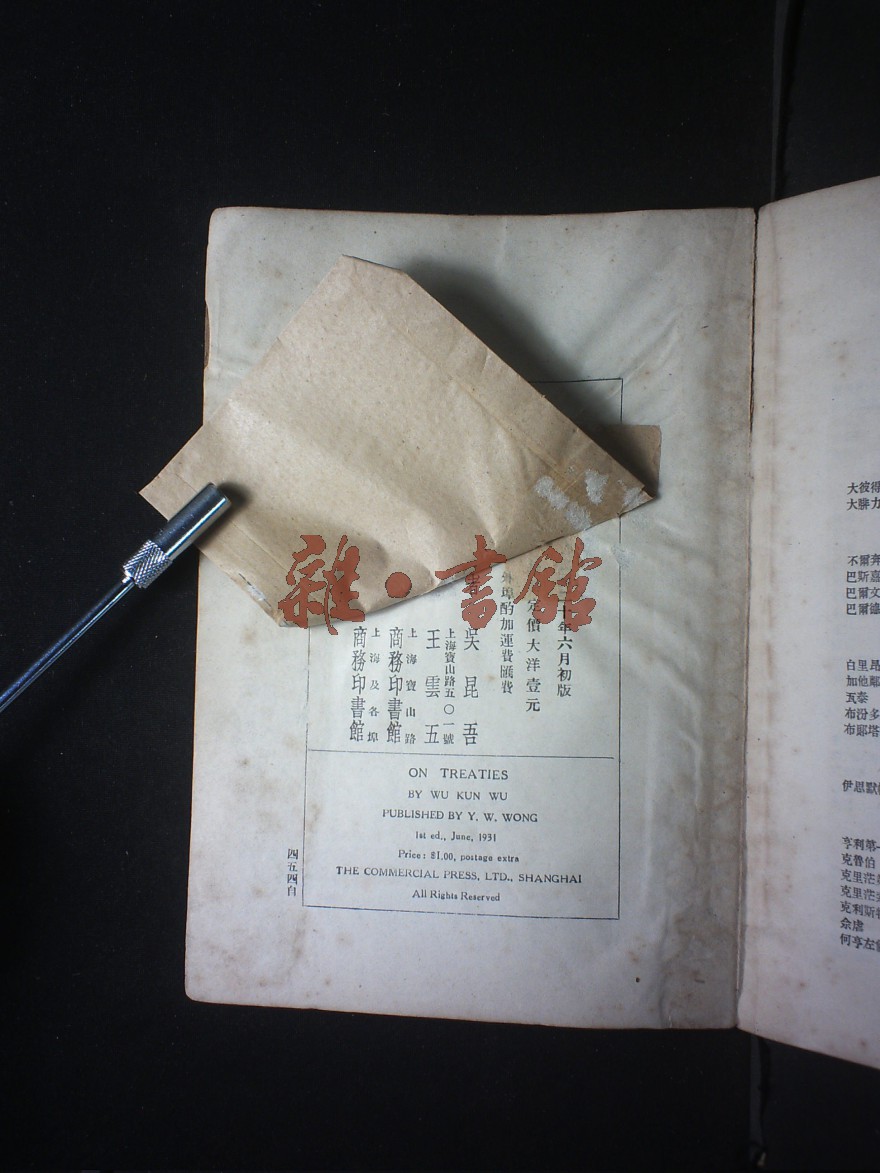 雜·書館
十年六月初版
定價大洋壹元
外埠酌加運費匯費
吳昆吾
上海寶山路五〇一號
王雲五
上海寶山路
商務印書館
上海及各埠
商務印書館
ON TREATIES
BY WU KUN WU
PUBLISHED BY Y. W. WONG
1st ed., June, 1931
Price: $1.00, postage extra
THE COMMERCIAL PRESS, LTD., SHANGHAI
All Rights Reserved
四五四自
大彼得
大脺力
不爾奔
巴斯嘉
巴爾文
巴爾德
白里昂
加他鄰
瓦泰
布汾多
布鄰塔
伊思默
亨利第一
克魯伯
克里茫
克里茫
克利斯
佘虐
何亨左